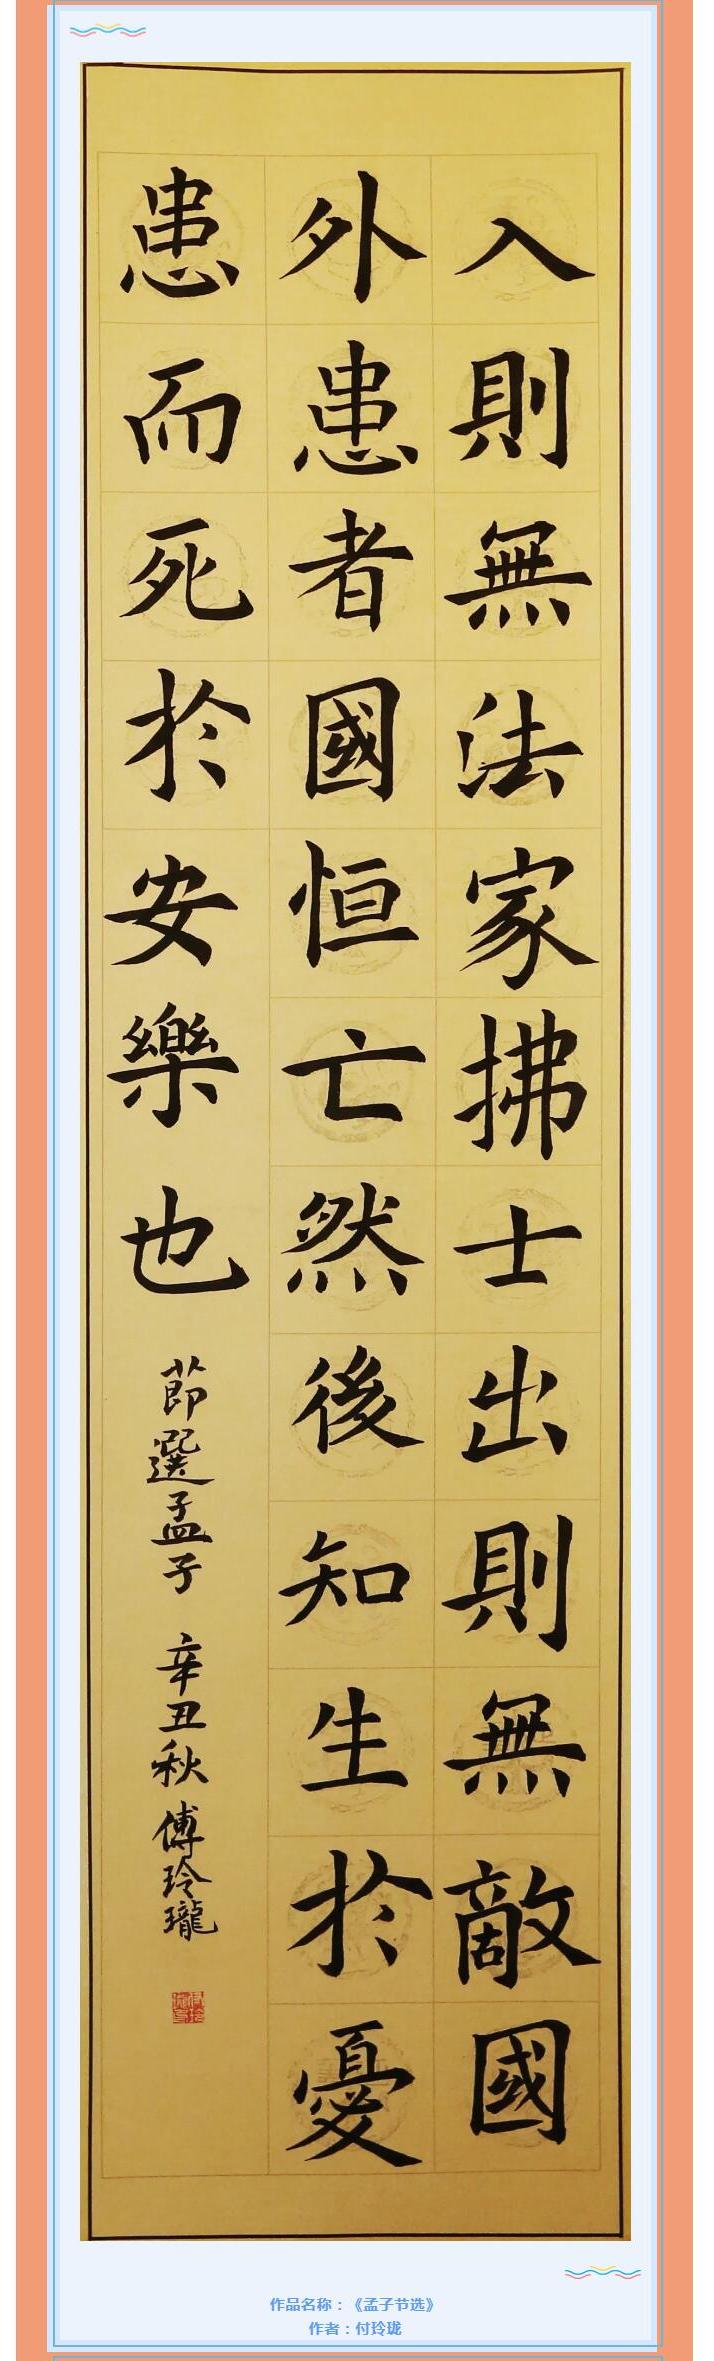 入則無法家拂士出則無敵國
外患者國恒亡然後知生於憂
患而死於安樂也
節選孟子 辛丑秋 傅玲瓏
作品名称：《孟子节选》
作者：付玲珑